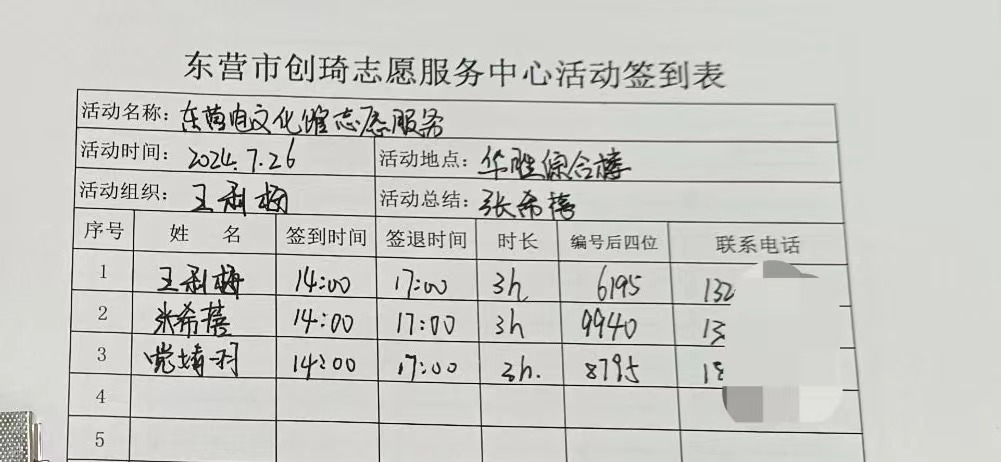 东营市创琦志愿服务中心活动签到表
活动名称：东营电文化馆志愿服务
活动时间：2024.7.26 活动地点：华胜综合楼
活动组织：王利梅 活动总结：张希蓓
序号 姓 名 签到时间 签退时间 时长 编号后四位 联系电话
1 王利梅 14:00 17:00 3h 6195 132
2 张希蓓 14:00 17:00 3h 9940 13
3 14:00 17:00 3h. 8795
4
5